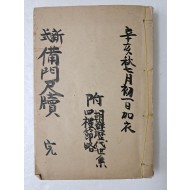 辛亥秋七月初一日加衣
附
四禮節略
新式
備門尺牘
完